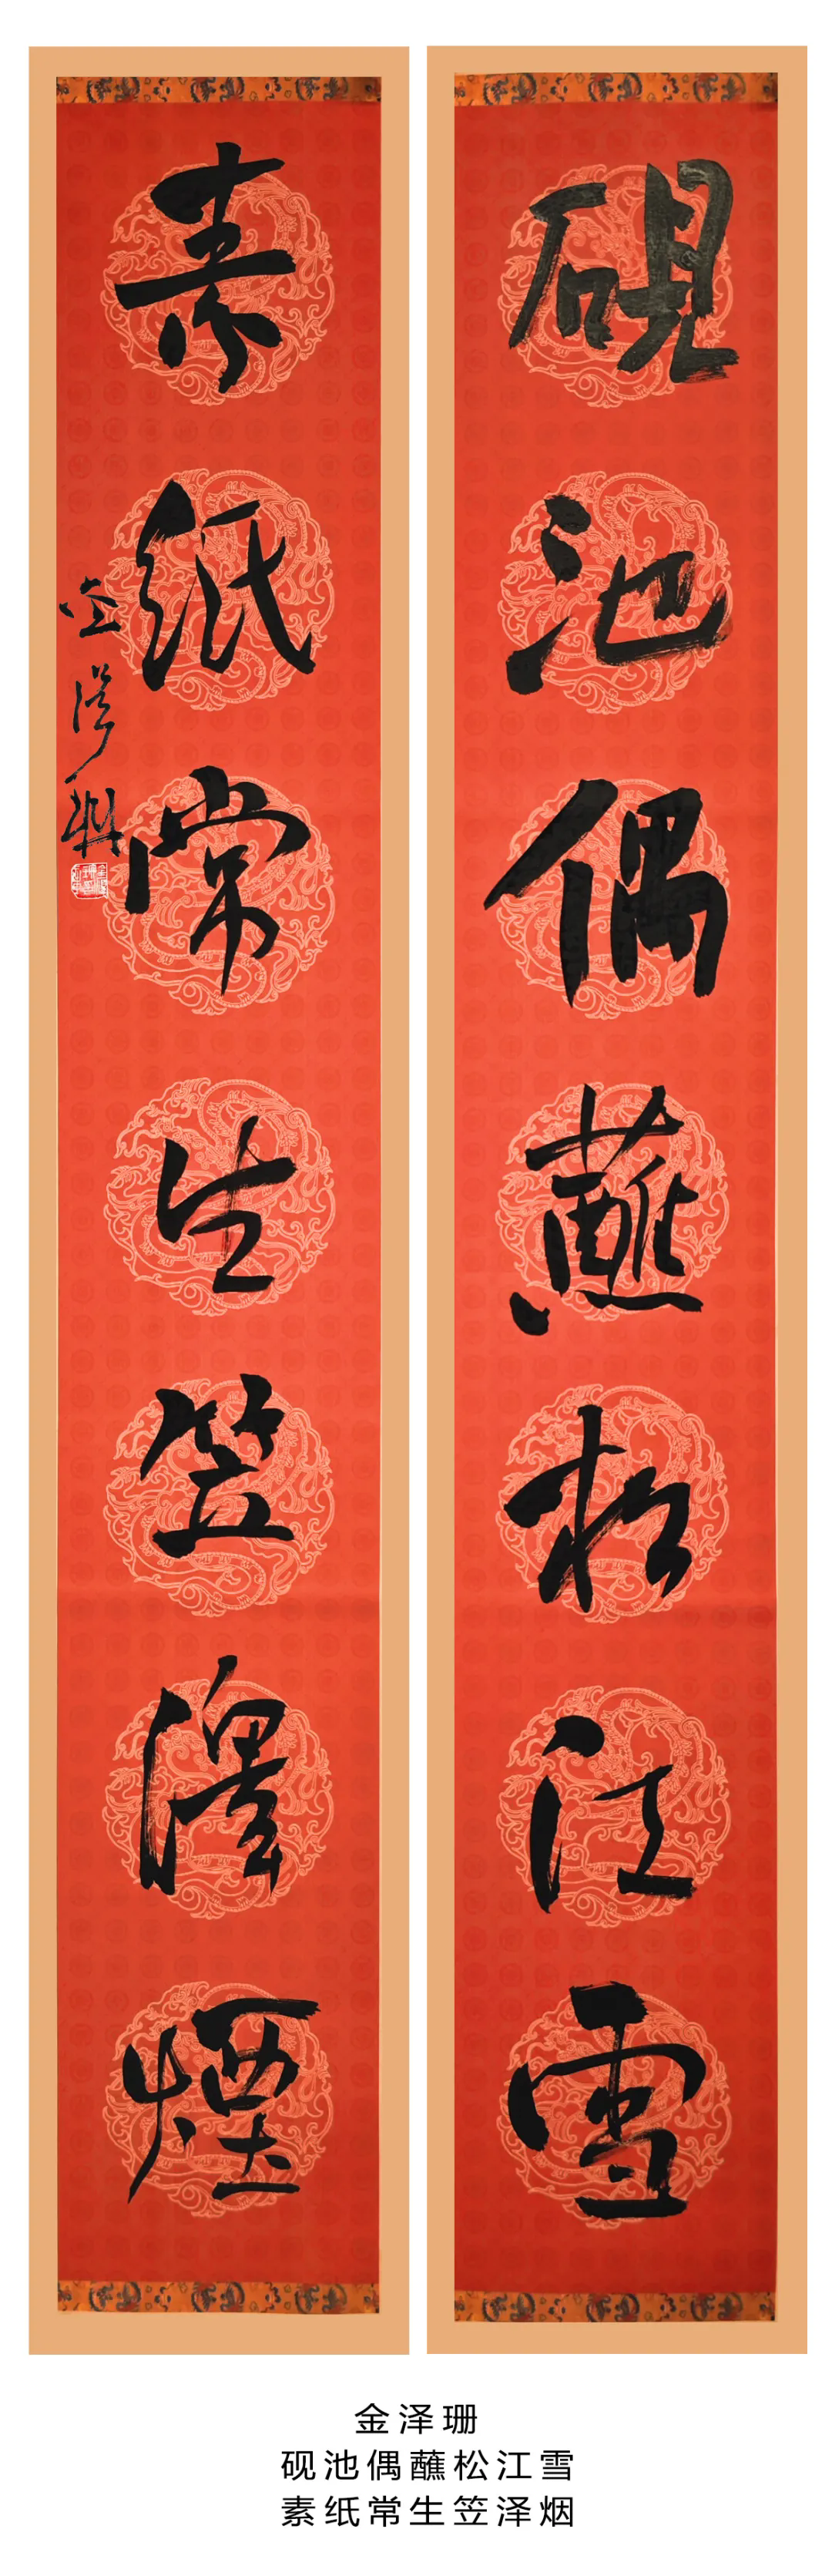 硯池偶蘸松江雪
素紙常生笠澤煙
金澤珊
金泽珊
砚池偶蘸松江雪
素纸常生笠泽烟